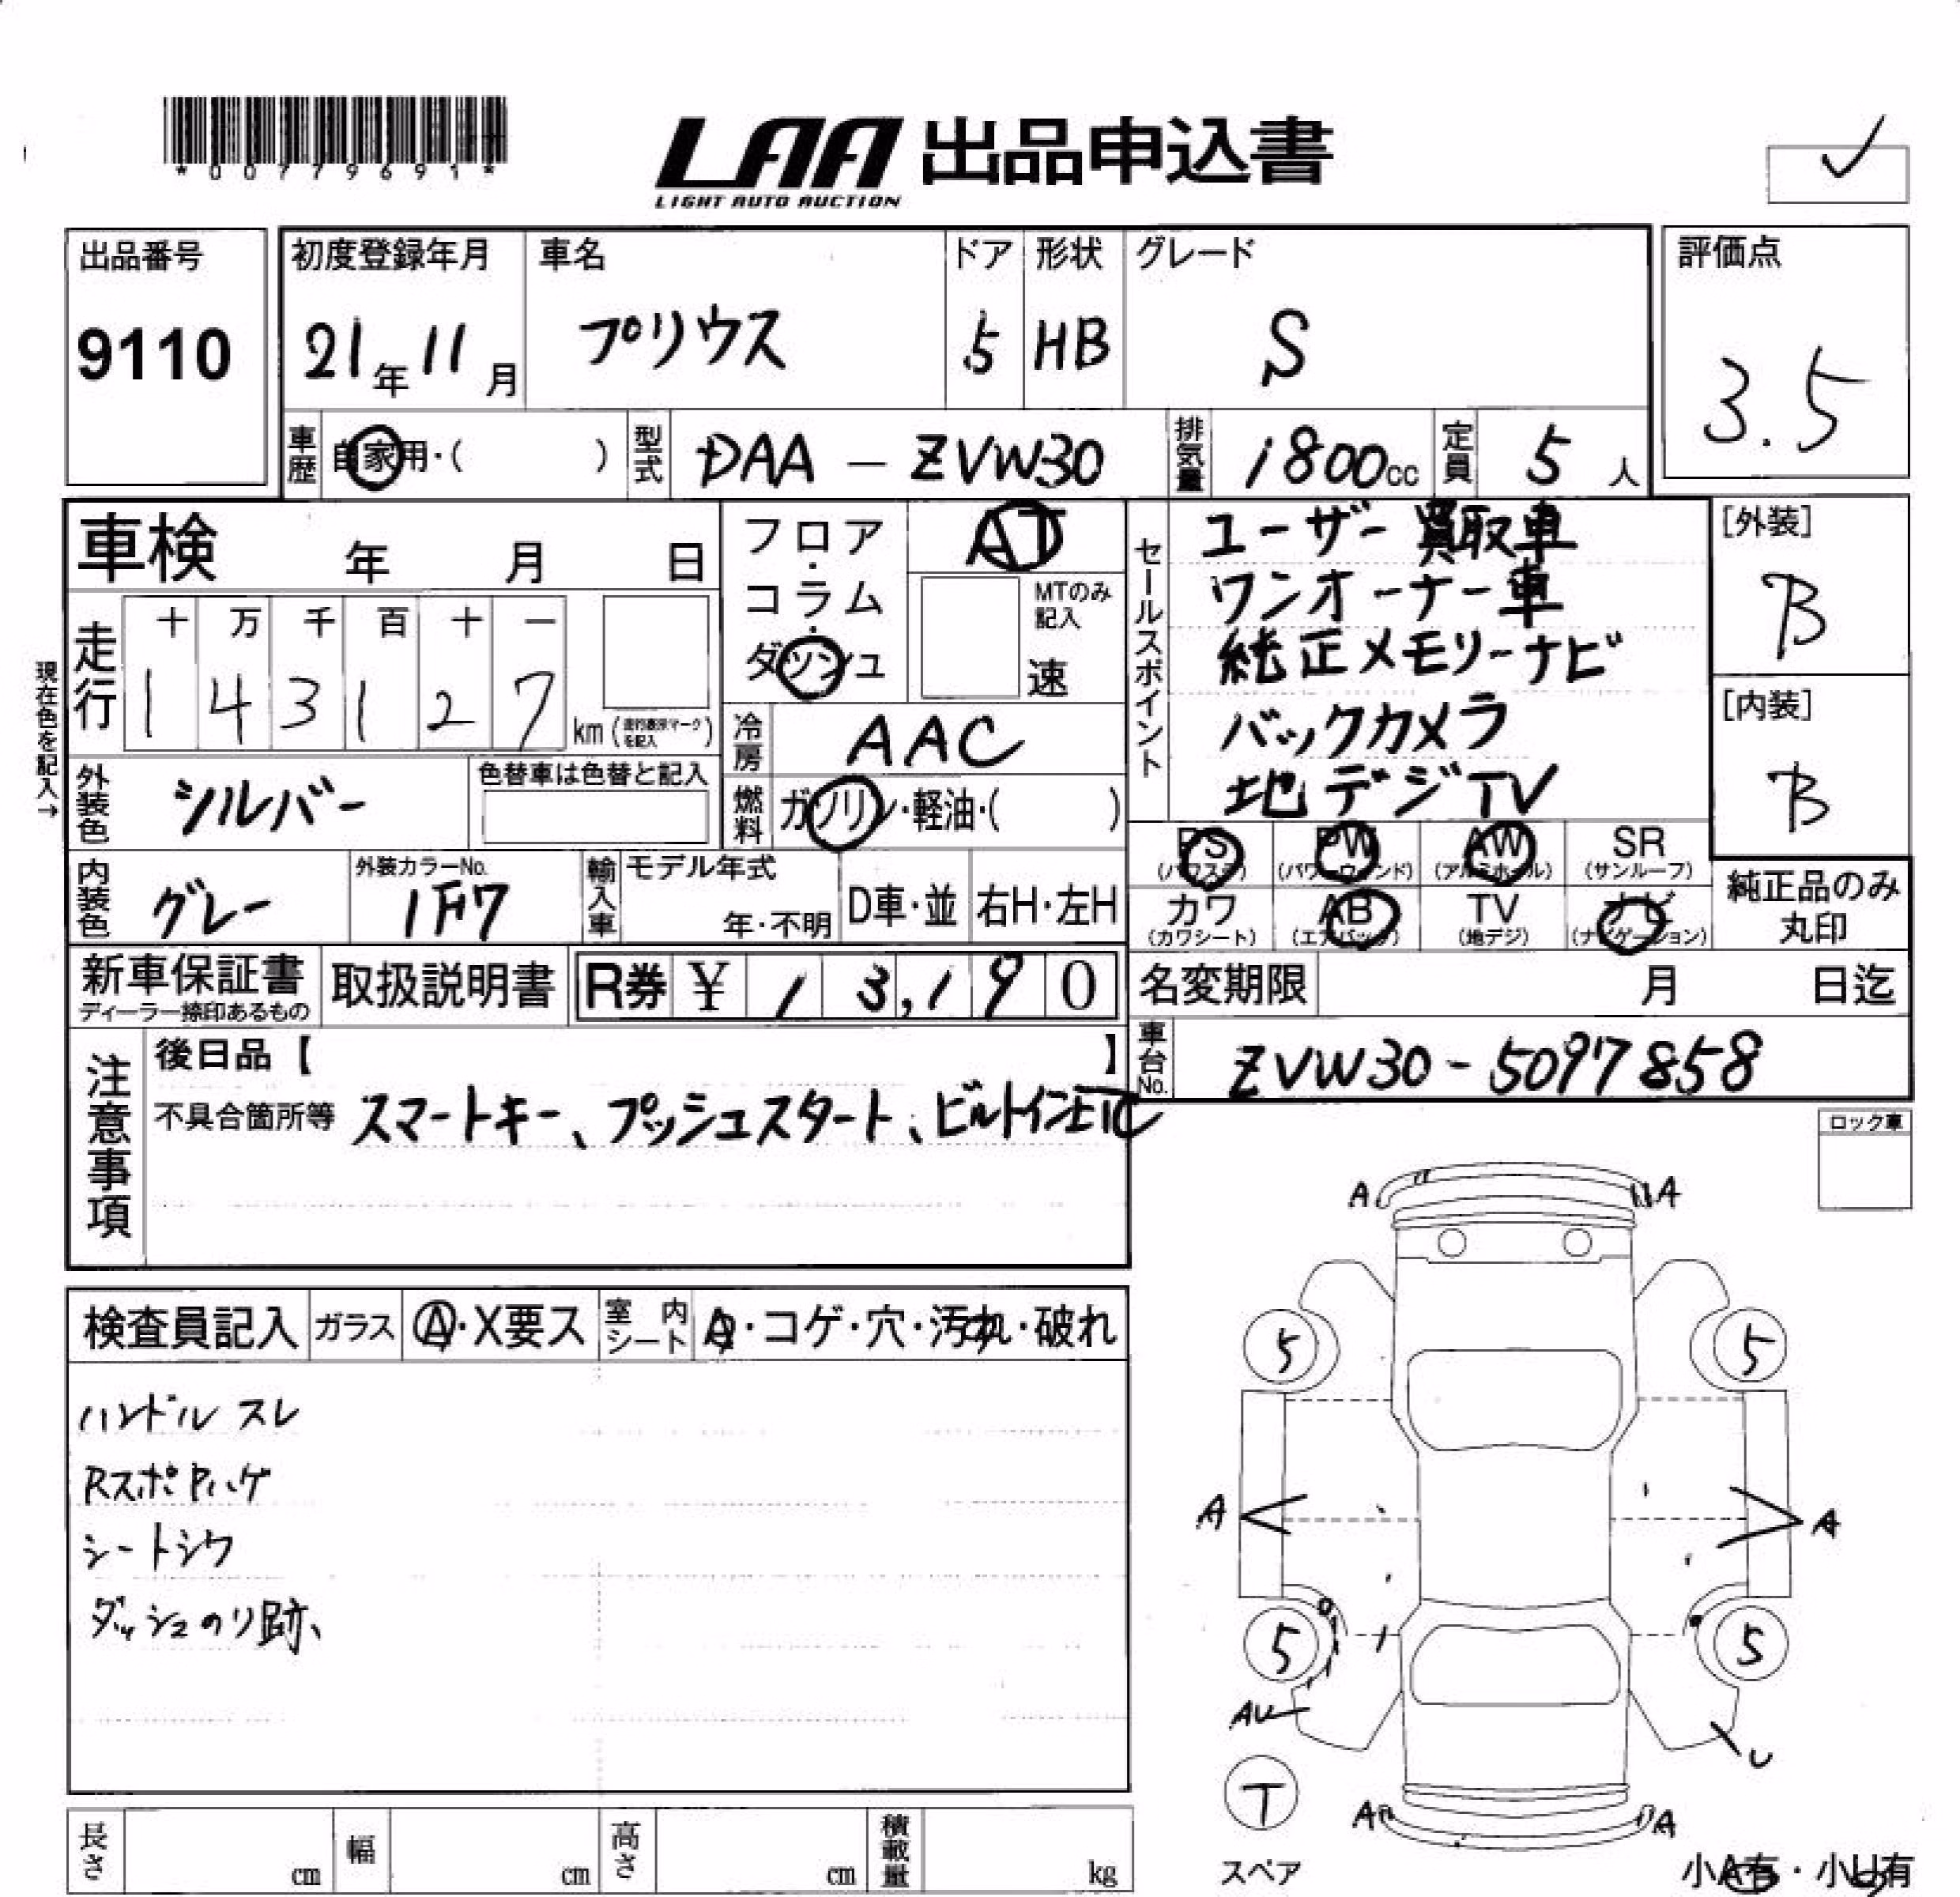 *00779691*
LAA 出品申込書
LIGHT AUTO AUCTION
✓
出品番号
9110
初度登録年月
21年11月
車名
プリウス
ドア
5
形状
HB
グレード
S
評価点
3.5
車歴
自家用・( )
型式
DAA - ZVW30
排気量
1800cc
定員
5人
車検 年 月 日
フロア・コラム・ダッシュ
AT
MTのみ記入
速
セールスポイント
ユーザー買取車
ワンオーナー車
純正メモリーナビ
バックカメラ
地デジTV
[外装]
B
[内装]
B
現在色を記入→
走行
十 万 千 百 十 一
1 4 3 1 2 7
km (走行表示マークを記入)
冷房
AAC
外装色
シルバー
色替車は色替と記入
燃料
ガソリン・軽油・( )
PS (パワステ)
PW (パワーウィンド)
AW (アルミホール)
SR (サンルーフ)
カワ (カワシート)
AB (エアバック)
TV (地デジ)
ナビ (ナビゲーション)
純正品のみ丸印
内装色
グレー
外装カラーNo.
1F7
輸入車
モデル年式
年・不明
D車・並
右H・左H
新車保証書
ディーラー捺印あるもの
取扱説明書
R券 ¥ 13,190
名変期限 月 日迄
車台No.
ZVW30-5097858
注意事項
後日品【 】
不具合箇所等 スマートキー、プッシュスタート、ビルトインETC
ロック車
検査員記入
ガラス
A・X要ス
室内シート
・コゲ・穴・汚れ・破れ
ハンドルスレ
シートシワ
ダッシュのり跡、
A A
5 5
A A
5 5
AU U
T
スペア
A A
小A有・小U有
長さ cm
幅 cm
高さ cm
積載量 kg